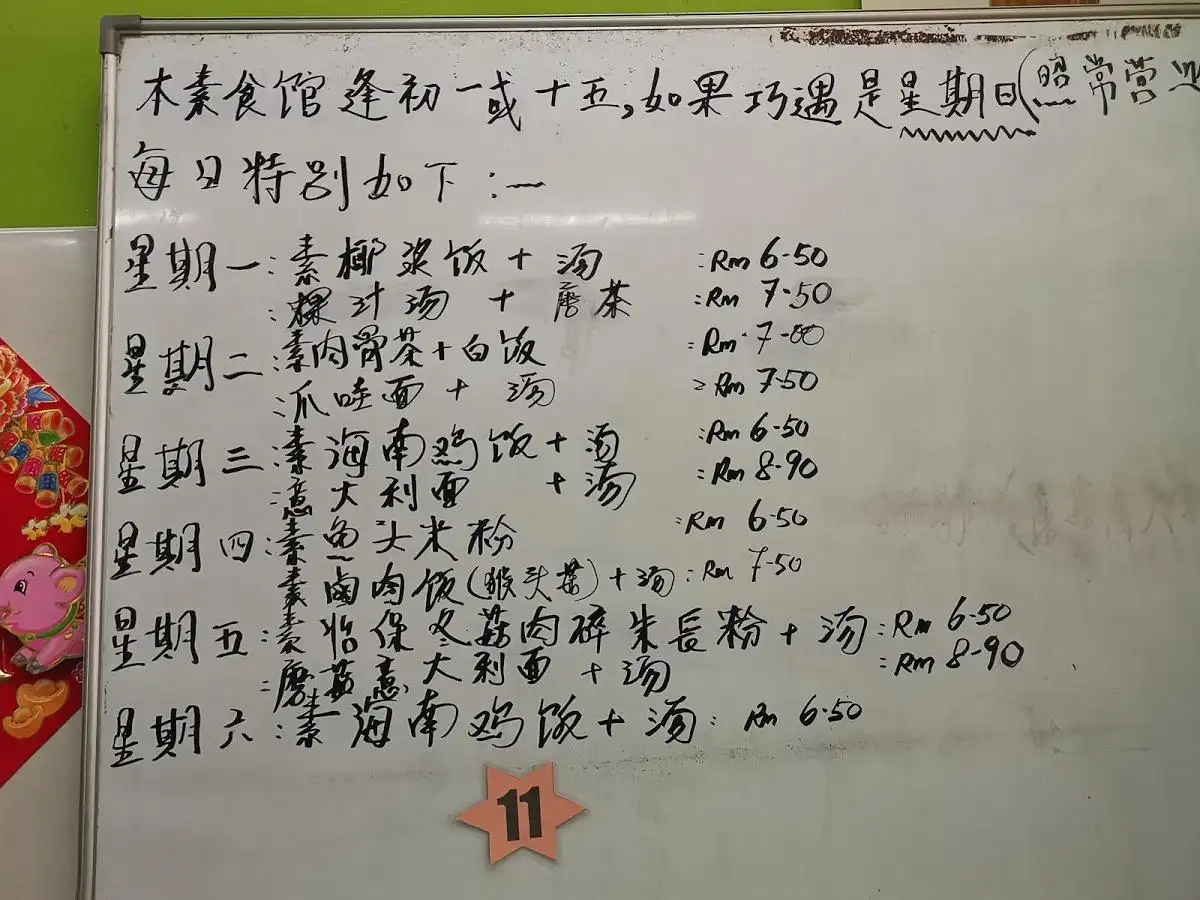 本素食馆逢初一或十五,如果巧遇是星期日(照常营业
每日特别如下:一
星期一:素椰浆饭+汤 :Rm 6.50
:粿汁汤 + 磨茶 :Rm 7.50
星期二:素肉骨茶+白饭 :Rm 7.00
:爪哇面 + 汤 :Rm 7.50
星期三:素海南鸡饭+汤 :Rm 6.50
:意大利面 +汤 :Rm 8.90
星期四:素鱼头米粉 :Rm 6.50
素卤肉饭(猴头菇)+汤:Rm 7.50
星期五:素怡保冬菇肉碎朱長粉+汤:Rm 6.50
:磨菇意大利面+汤 :Rm 8.90
星期六:素海南鸡饭+汤: Rm 6.50
11